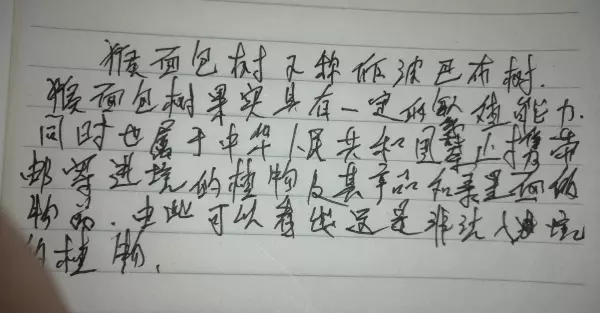 猴面包树又称低波巴布树.
猴面包树果实具有一定的繁殖能力.
同时也属于中华人民共和国禁止携带
邮寄进境的植物及其产品和其里面的
物品.由此可以看出这是非法入境
的植物.